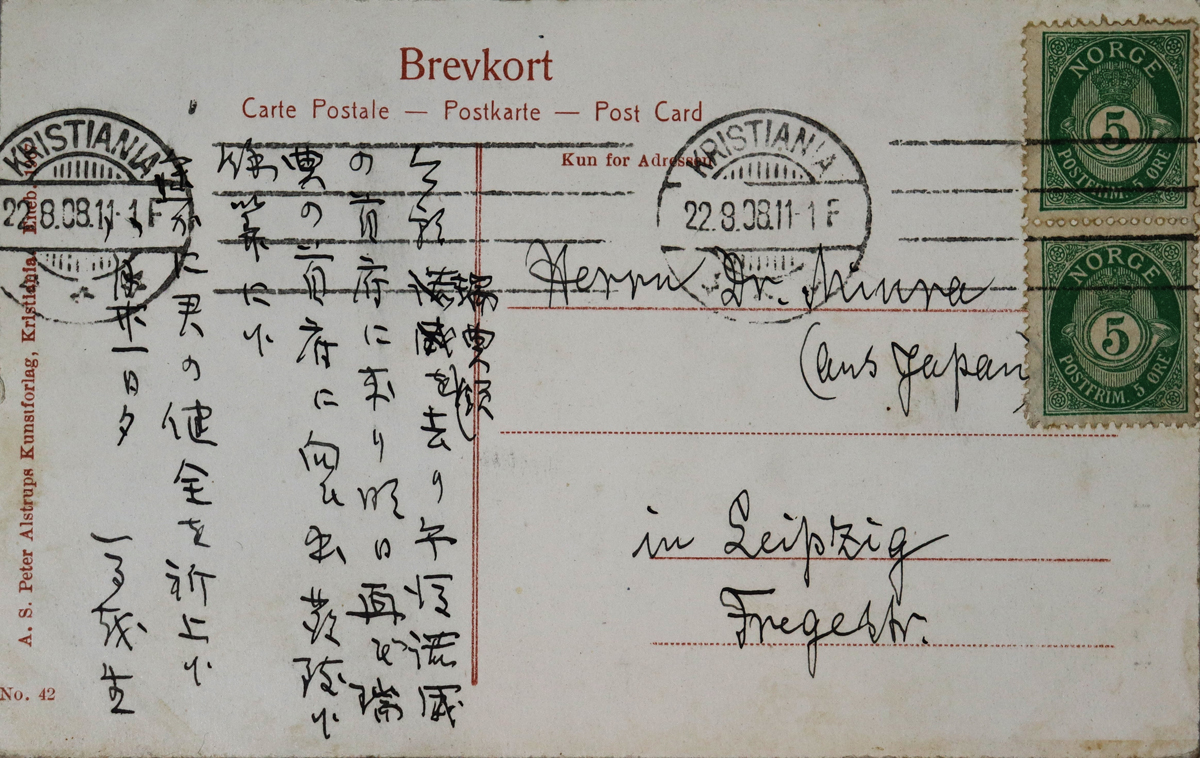 Brevkort
Carte Postale — Postkarte — Post Card
Kun for Adressen
NORGE
5
POSTFRIM. 5 ØRE
NORGE
5
POSTFRIM. 5 ØRE
KRISTIANIA
22.8.08.11-1 F
KRISTIANIA
22.8.08.11-1 F
Herrn Dr. Miura
(aus Japan)
in Leipzig
Fregestr.
瑞典領
今朝諾威を去り午後諾威
の首府に来り明日再び瑞
典の首府に向ひ出発致候
に候
に君の健全を祈上候
廿一日夕
生
A. S. Peter Alstrups Kunstforlag, Kristiania. Eneb.
No. 42